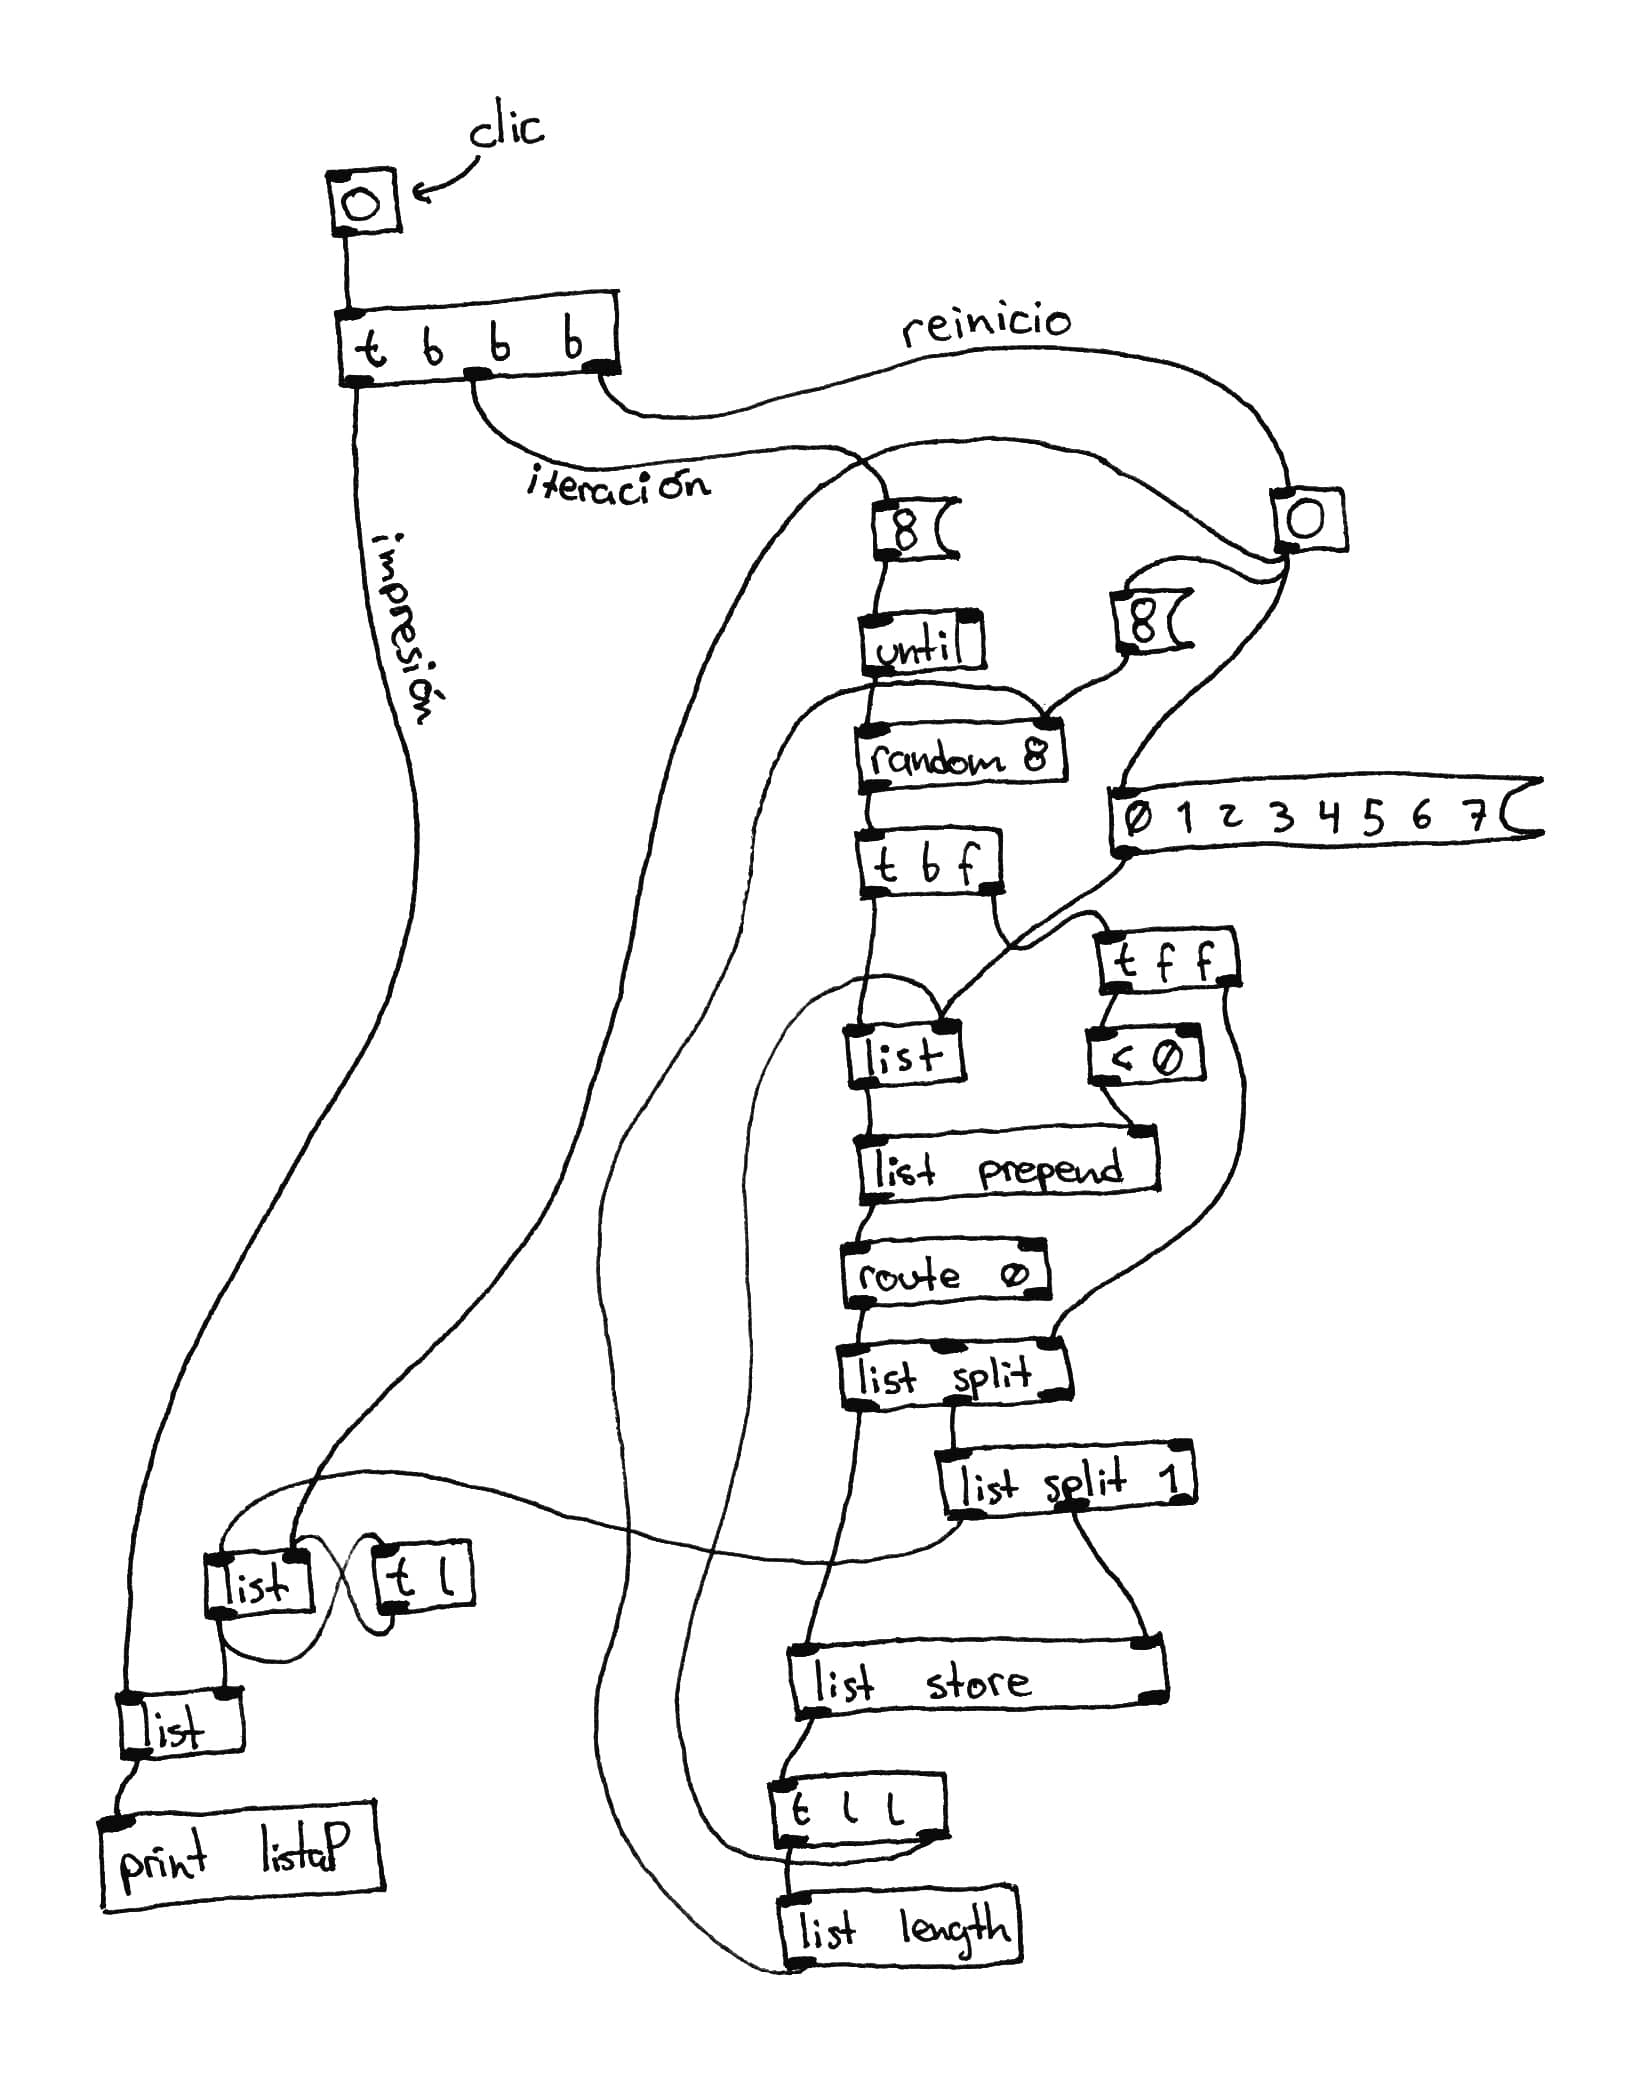 clic
t b b b
reinicio
iteración
impresión
8
8
until
random 8
0 1 2 3 4 5 6 7
t b f
t f f
list
< 0
list prepend
route 0
list split
list split 1
list
t l
list store
list
t l l
print listaP
list length